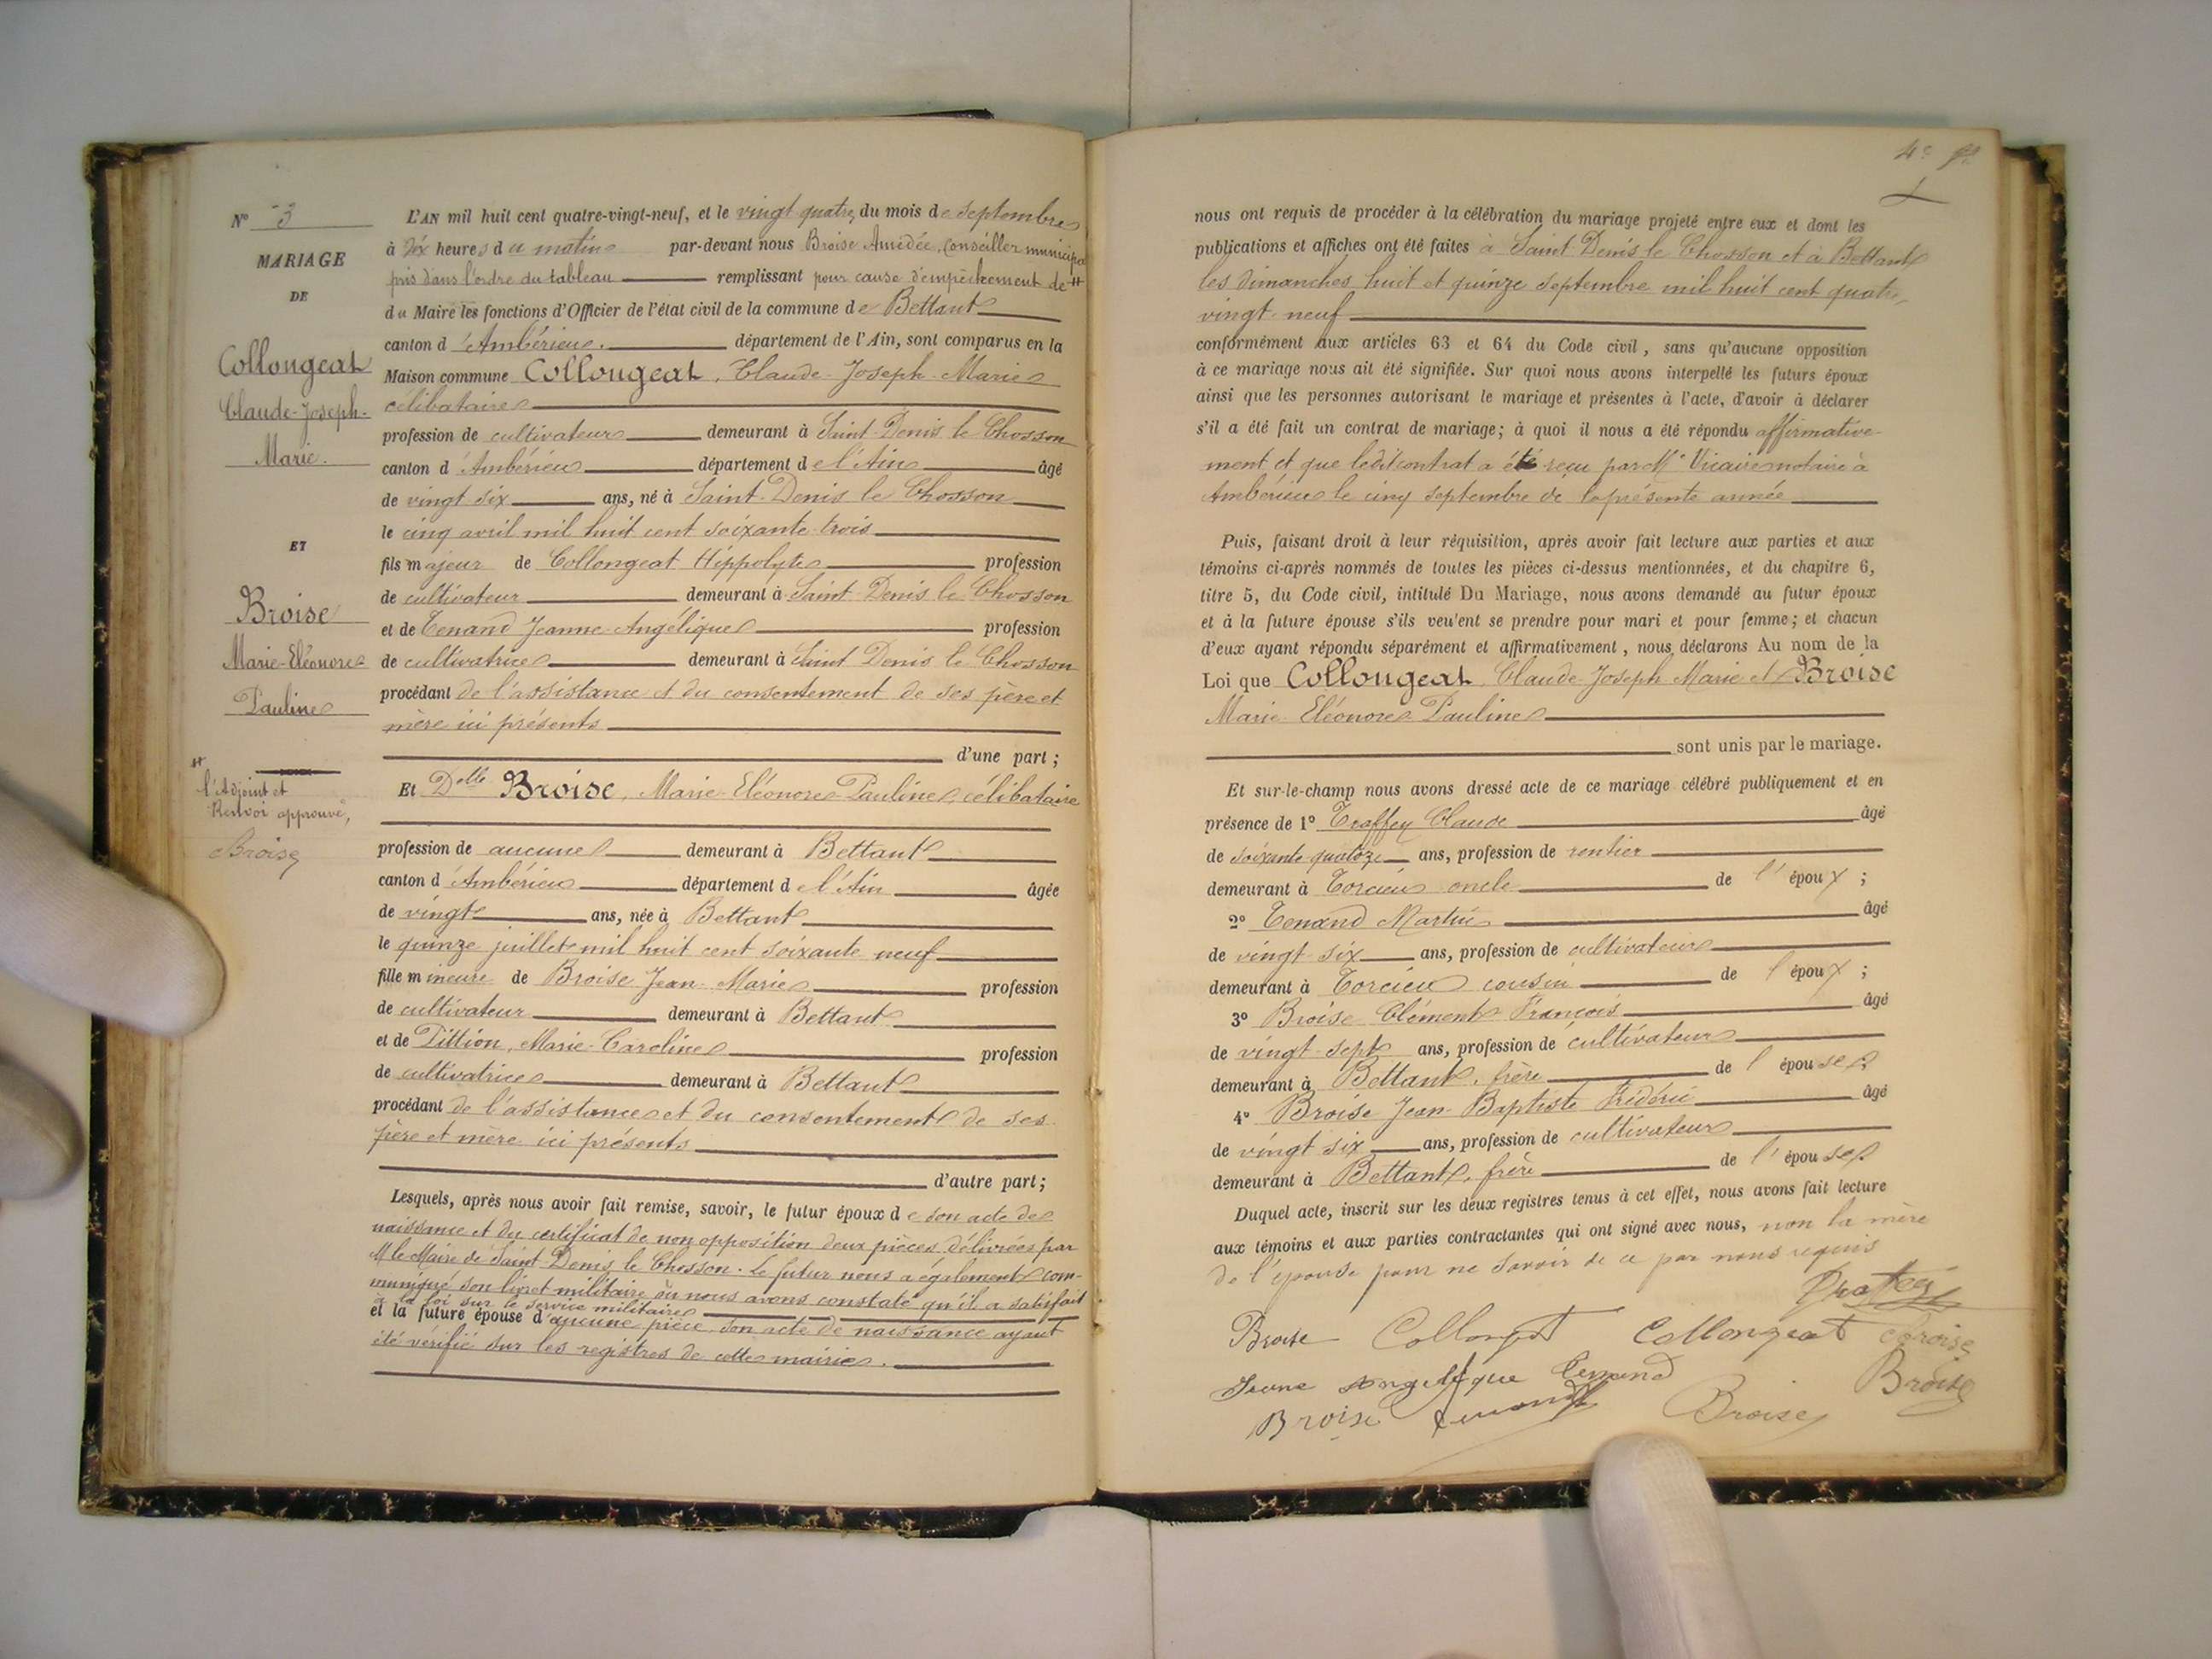 N° 3
MARIAGE
DE
Collongeat
Claude-Joseph-
Marie.
ET
Broise
Marie-Eléonore
Pauline
l'Adjoint et
Renvoi approuvé,
Broise
L'AN mil huit cent quatre-vingt-neuf, et le vingt quatre du mois de septembre
à dix heures du matin par-devant nous Broise Amédée, Conseiller municipal
pris dans l'ordre du tableau remplissant pour cause d'empêchement de #
du Maire les fonctions d'Officier de l'état civil de la commune de Bettant
canton d'Ambérieu. département de l'Ain, sont comparus en la
Maison commune Collongeat, Claude-Joseph-Marie
célibataire
profession de cultivateur demeurant à Saint-Denis le Chosson
canton d'Ambérieu département de l'Ain âgé
de vingt six ans, né à Saint-Denis le Chosson
le cinq avril mil huit cent soixante-trois
fils majeur de Collongeat Hippolyte profession
de cultivateur demeurant à Saint-Denis le Chosson
et de Tenand Jeanne-Angélique profession
de cultivatrice demeurant à Saint-Denis le Chosson
procédant de l'assistance et du consentement de ses père et
mère ici présents
d'une part ;
Et Delle Broise, Marie-Eléonore-Pauline, célibataire
profession de aucune demeurant à Bettant
canton d'Ambérieu département de l'Ain âgée
de vingt ans, née à Bettant
le quinze juillet mil huit cent soixante neuf
fille mineure de Broise Jean-Marie profession
de cultivateur demeurant à Bettant
et de Tittion, Marie-Caroline profession
de cultivatrice demeurant à Bettant
procédant de l'assistance et du consentement de ses
père et mère ici présents
d'autre part ;
Lesquels, après nous avoir fait remise, savoir, le futur époux de son acte de
naissance et du certificat de non opposition deux pièces délivrées par
M le Maire de Saint Denis le Chosson. Le futur nous a également com-
muniqué son livret militaire où nous avons constaté qu'il a satisfait
à la loi sur le service militaire
et la future épouse d'aucune pièce son acte de naissance ayant
été vérifié sur les registres de cette mairie.
4e
nous ont requis de procéder à la célébration du mariage projeté entre eux et dont les
publications et affiches ont été faites à Saint-Denis le Chosson et à Bettant
les dimanches huit et quinze septembre mil huit cent quatre-
vingt-neuf
conformément aux articles 63 et 64 du Code civil, sans qu'aucune opposition
à ce mariage nous ait été signifiée. Sur quoi nous avons interpellé les futurs époux
ainsi que les personnes autorisant le mariage et présentes à l'acte, d'avoir à déclarer
s'il a été fait un contrat de mariage; à quoi il nous a été répondu affirmative-
ment et que ledit contrat a été reçu par Me Vicaire notaire à
Ambérieu le cinq septembre de la présente année
Puis, faisant droit à leur réquisition, après avoir fait lecture aux parties et aux
témoins ci-après nommés de toutes les pièces ci-dessus mentionnées, et du chapitre 6,
titre 5, du Code civil, intitulé Du Mariage, nous avons demandé au futur époux
et à la future épouse s'ils veulent se prendre pour mari et pour femme; et chacun
d'eux ayant répondu séparément et affirmativement, nous déclarons Au nom de la
Loi que Collongeat, Claude-Joseph-Marie et Broise
Marie-Eléonore-Pauline
sont unis par le mariage.
Et sur-le-champ nous avons dressé acte de ce mariage célébré publiquement et en
présence de 1° Traffey Claude âgé
de soixante-quatorze ans, profession de rentier
demeurant à Torcieu oncle de l'époux ;
2° Tenand Martin âgé
de vingt-six ans, profession de cultivateur
demeurant à Torcieu cousin de l'époux ;
3° Broise Clément François âgé
de vingt-sept ans, profession de cultivateur
demeurant à Bettant, frère de l'épouse
4° Broise Jean-Baptiste Frédéric âgé
de vingt six ans, profession de cultivateur
demeurant à Bettant, frère de l'épouse
Duquel acte, inscrit sur les deux registres tenus à cet effet, nous avons fait lecture
aux témoins et aux parties contractantes qui ont signé avec nous, non la mère
de l'épouse pour ne savoir de ce par nous requis
Broise Collongeat Collongeat Broise
Jeanne Angélique Tenand Broise
Broise Tenand Broise